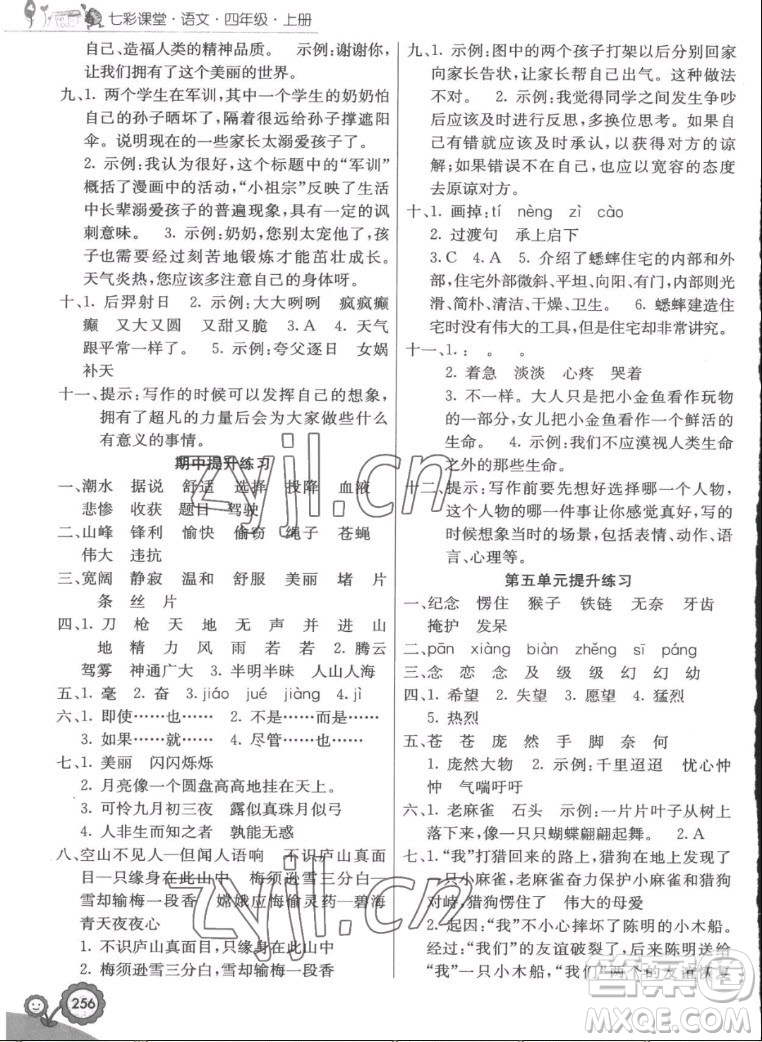 七彩课堂·语文·四年级·上册
自己、造福人类的精神品质。 示例:谢谢你,
让我们拥有了这个美丽的世界。
九、1. 两个学生在军训,其中一个学生的奶奶怕
自己的孙子晒坏了,隔着很远给孙子撑遮阳
伞。说明现在的一些家长太溺爱孩子了。
2. 示例:我认为很好,这个标题中的“军训”
概括了漫画中的活动,“小祖宗”反映了生活
中长辈溺爱孩子的普遍现象,具有一定的讽
刺意味。 3. 示例:奶奶,您别太宠他了,我
们都要经过刻苦地锻炼才能茁壮成长。
天气炎热,您应该多注意自己的身体呀。
十、1. 后羿射日 2. 示例:大大咧咧 疯疯癫
癫 又大又圆 又甜又脆 3.A 4. 天气
跟平常一样了。 5. 示例:夸父逐日 女娲
补天
十一、提示:写作的时候可以发挥自己的想象,
拥有了超凡的力量后会为大家做些什么
有意义的事情。
期中提升练习
一、潮水 据说 舒适 选择 投降 血液
悲惨 收获 题目 驾驶
二、山峰 锋利 愉快 偷窃 绳子 苍蝇
伟大 违抗
三、宽阔 静寂 温和 舒服 美丽 堵 片
条 丝 片
四、1. 刀 枪 天 地 无 声 并 进 山
地 精 力 风 雨 若 若 2. 腾云
驾雾 神通广大 3. 半明半昧 人山人海
五、1. 毫 2. 奋 3. jiáo jué jiàng 4. jì
六、1. 即使……也…… 2. 不是……而是……
3. 如果……就…… 4. 尽管……也……
七、1. 美丽 闪闪烁烁
2. 月亮像一个圆盘高高地挂在天上。
3. 可怜九月初三夜 露似真珠月似弓
4. 人非生而知之者 孰能无惑
八、空山不见人—但闻人语响 不识庐山真面
目—只缘身在此山中 梅须逊雪三分白—
雪却输梅一段香 嫦娥应悔偷灵药—碧海
青天夜夜心
1. 不识庐山真面目,只缘身在此山中
2. 梅须逊雪三分白,雪却输梅一段香
256
九、1. 示例:图中的两个孩子打架以后只知道回去
向家长告状,让家长帮自己出气。这种做法
不对。 2. 示例:我觉得同学之间发生争吵
后应该及时进行反思,多换位思考。如果自
己有错就应该及时承认,以获得对方的谅
解;如果错误不在自己,应以宽容的态度
去原谅对方。
十、1. 画掉:tí nèng zì cào
2. 过渡句 承上启下
3. C 4. A 5. 介绍了蟋蟀住宅的内部和外
部,住宅外部微斜、平坦、向阳、有门,内部光
滑、简朴、清洁、干燥、卫生。 6. 蟋蟀建造住
宅时没有伟大的工具,但是住宅却非常讲究。
十一、1. : 。 。
2. 着急 淡淡 心疼 哭着
3. 不一样。大人只是把小金鱼看作玩物
的一部分,女儿把小金鱼看作一个鲜活的
生命。 4. 示例:我们不应漠视人类生命
之外的那些生命。
十二、提示:写作前要先想好选择哪一个人物,
这个人物的哪一件事让你欣赏或难忘。写
的时候想象当时的场景,包括动作、语
言、心理等。
第五单元提升练习
一、纪念 愣住 猴子 铁链 无奈 牙齿
掩护 发呆
二、pān xiàng biàn zhěng sī páng
三、念 恋 念 及 级 级 幻 幻
四、1. 希望 2. 失望 3. 愿望 4. 猛烈
5. 热烈
五、苍 苍 庞 然 手 脚 奈 何
1. 庞然大物 2. 示例:千里迢迢 忧心忡
忡 气喘吁吁
六、1. 老麻雀 石头 示例:一片片叶子从树上
落下来,像一只只蝴蝶翩翩起舞。 2.A
七、1. “我”打猎回来的路上,猎狗无意中发现了
一只小麻雀,老麻雀奋力保护小麻雀和猎狗
对峙,猎狗愣住了 伟大的母爱
2. 起因:“我”不小心摔坏了陈明的小木船。
经过:“我们”的友谊破裂了,后来陈明送给
“我”一只小木船,“我们”两个的友谊恢复
zyjl.cn
zyjl.cn